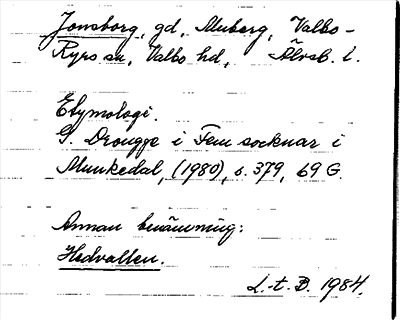 Jonsborg, gd, Muberg, Valbo-
Ryrs sn, Valbo hd, Älvsb. l.
Etymologi.
G. Drougge i Fem socknar i
Munkedal, (1980), s. 379, 69 G.
Annan benämning:
Hedvallen.
L-t. B. 1984.